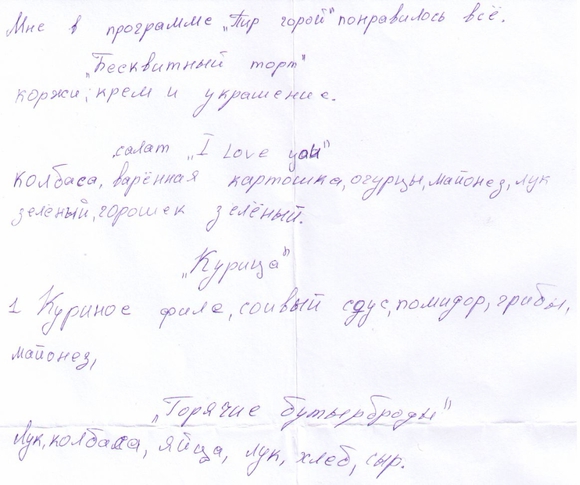 Мне в программе „Пир горой" понравилось всё.
„Бесквитный торт"
коржи, крем и украшение.
салат „I Love you"
колбаса, варённая картошка, огурцы, майонез, лук
зелёный, горошек зелёный.
„Курица"
1 Куриное филе, соивый соус, помидор, грибы,
майонез,
„Горячие бутырброды"
Лук, колбаса, яйца, лук, хлеб, сыр.